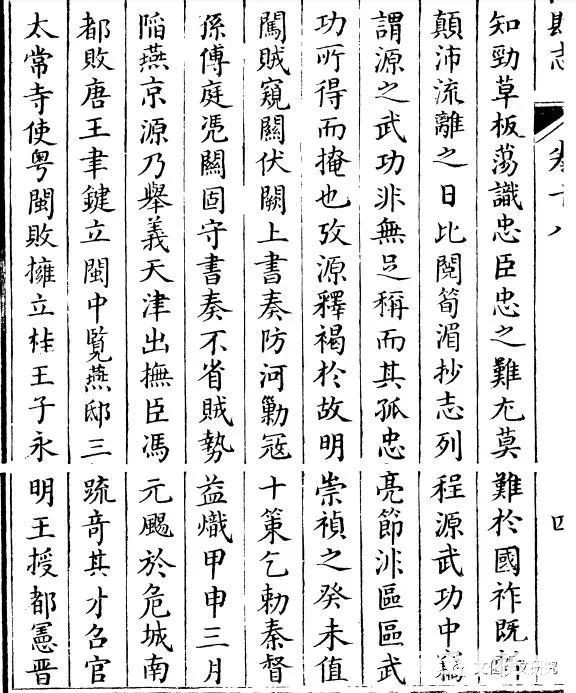 志 卷十八 四
知勁草板蕩識忠臣忠之難尤莫難於國祚既
顛沛流離之日比閱筍湄抄志列程源武功中竊
謂源之武功非無足稱而其孤忠亮節非區區武
功所得而掩也攷源釋褐於故明崇禎之癸未值
闖賊窺關伏闕上書奏防河勦寇十策乞勅秦督
孫傳庭凭關固守書奏不省賊勢益熾甲申三月
陷燕京源乃舉義天津出撫臣馮元颺於危城南
都敗唐王聿鍵立閩中覧燕邸三疏竒其才召官
太常寺使粤閩敗擁立桂王子永明王授都憲晋